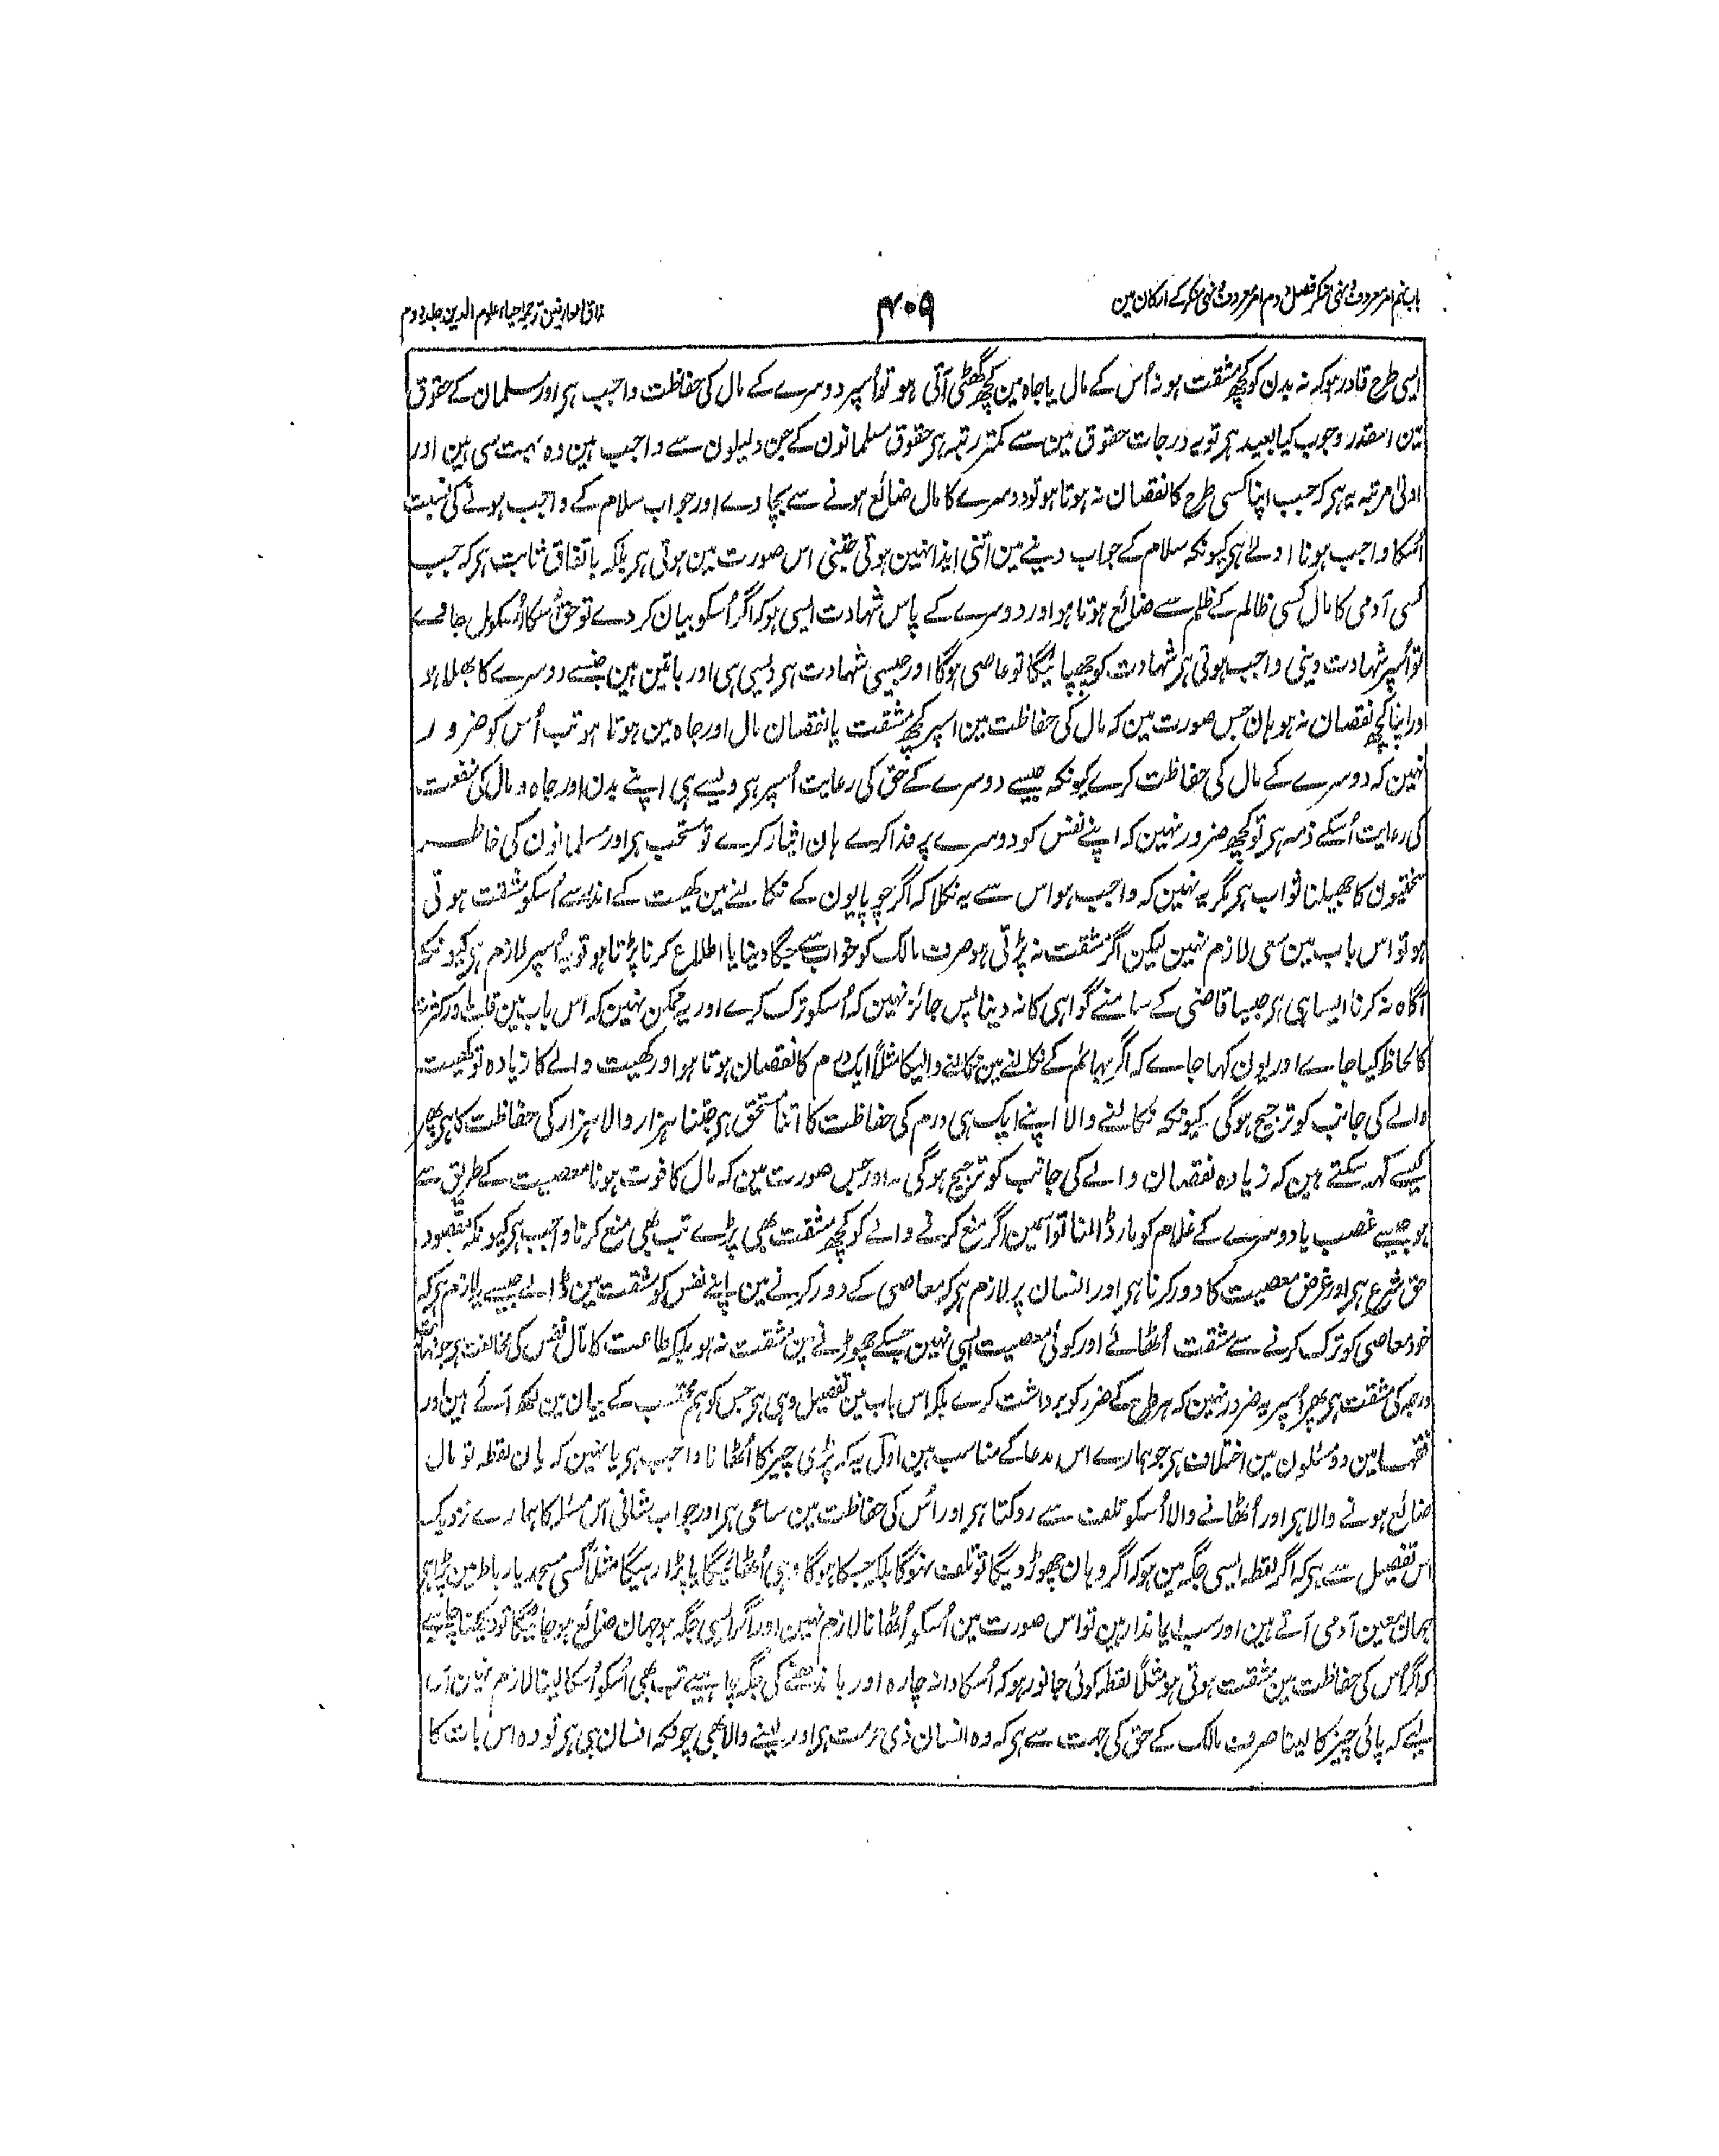 باب نہم امر معروف و نہی منکر فصل دوم امر معروف و نہی منکر کے ارکان مین
۴۰۹
مذاق العارفین ترجمہ احیاء علوم الدین جلد دوم
ایسی طرح قادر ہو کہ نہ بدن کو کچھ مشقت ہو نہ اُس کے مال یا جاہ مین کچھ گھٹی آتی ہو تو اُسپر دوسرے کے مال کی حفاظت واجب ہر اور مسلمان کے حقوق
مین اسقدر وجوب کیا بعید ہر تو یہ درجات حقوق مین سے کمتر رتبہ ہر حقوق مسلمانون کے جن دلیلون سے واجب ہین وہ بہت سی ہین اور
اولیٰ مرتبہ یہ ہر کہ جب اپنا کسی طرح کا نقصان نہ ہوتا ہو تو دوسرے کا مال ضائع ہونے سے بچاوے اور جواب سلام کے واجب ہونے کی نسبت
اُسکا واجب ہونا اولے ہر کیونکہ سلام کے جواب دینے مین اتنی ایذا نہین ہوتی جتنی اس صورت مین ہوتی ہر بلکہ باتفاق ثابت ہر کہ جب
کسی آدمی کا مال کسی ظالم کے ظلم سے ضائع ہوتا ہو اور دوسرے کے پاس شہادت ایسی ہو کہ اگر اُسکو بیان کر دے تو حق اُسکا اُسکو مل جاوے
تو اُسپر شہادت دینی واجب ہوتی ہر شہادت کو چھپائیگا تو عاصی ہوگا اور جیسی شہادت ہر ویسی ہی اور باتین ہین جنسے دوسرے کا بھلا ہو
اور اپنا کچھ نقصان نہ ہو ہان جس صورت مین کہ مال کی حفاظت مین اسپر کچھ مشقت یا نقصان مال اور جاہ مین ہوتا ہو تب اُس کو ضرور
نہین کہ دوسرے کے مال کی حفاظت کرے کیونکہ جیسے دوسرے کے حق کی رعایت اُسپر ہر ویسے ہی اپنے بدن اور جاہ و مال کی منفعت
کی رعایت اُسکے ذمہ ہر تو کچھ ضرور نہین کہ اپنے نفس کو دوسرے پر فدا کرے ہان ایثار کرے تو مستحب ہر اور مسلمانون کی خاطر
سختیون کا جھیلنا ثواب ہر مگر یہ نہین کہ واجب ہو اس سے یہ نکلا کہ اگر چوپایون کے نکالنے مین کھیت کے اندر سے اُسکو مشقت ہوتی
ہو تو اس باب مین سعی لازم نہین لیکن اگر مشقت نہ پڑتی ہو صرف مالک کو خواب سے جگا دینا یا اطلاع کرنا پڑتا ہو تو یہ اُسپر لازم ہر کیونکہ
آگاہ نہ کرنا ایسا ہی ہر جیسا قاضی کے سامنے گواہی کا نہ دینا پس جائز نہین کہ اُسکو ترک کرے اور یہ ممکن نہین کہ اس باب مین قلت اور کثرت
کا لحاظ کیا جاے اور یون کہا جاے کہ اگر بہائم کے نکالنے مین نکالنے والیکا مثلاً ایک درم کا نقصان ہوتا ہو اور کھیت والے کا زیادہ تو کھیت
والے کی جانب کو ترجیح ہوگی کیونکہ نکالنے والا اپنے ایک ہی درم کی حفاظت کا اتنا مستحق ہر جتنا ہزار والا ہزار کی حفاظت کا ہر پھر
کیسے کہہ سکتے ہین کہ زیادہ نقصان والے کی جانب کو ترجیح ہوگی۔ اور جس صورت مین کہ مال کا فوت ہونا معصیت کے طریق سے
ہو جیسے غصب یا دوسرے کے غلام کو مار ڈالنا تو اسمین اگر منع کرنے والے کو کچھ مشقت بھی پڑے تب بھی منع کرنا واجب ہر کیونکہ مقصود
حق شرع ہر اور غرض معصیت کا دور کرنا ہر اور انسان پر لازم ہر کہ معاصی کے دور کرنے مین اپنے نفس کو مشقت مین ڈالے جیسے یہ لازم ہر کہ
خود معاصی کو ترک کرنے سے مشقت اُٹھائے اور کوئی معصیت ایسی نہین جسکے چھوڑنے مین مشقت نہ ہو بلکہ طاعت کا مآل نفس کی مخالفت ہر جو
درجہ کی مشقت ہر پھر اُسپر یہ ضرور نہین کہ ہر طرح کے ضرر کو برداشت کرے بلکہ اس باب مین تفصیل وہی ہر جس کو ہم محتسب کے بیان مین لکھ آئے ہین اور
فقہا مین دو مسئلون مین اختلاف ہر جو ہمارے اس مدعا کے مناسب ہین اوّل یہ کہ پڑی چیز کا اُٹھانا واجب ہر یا نہین کہ یا ن لقطہ تو مال
ضائع ہونے والا ہر اور اُٹھانے والا اُسکو تلف سے روکتا ہر اور اُس کی حفاظت مین ساعی ہر اور جواب شافی اس مسئلہ کا ہمارے نزدیک
اس تفصیل سے ہر کہ اگر لقطہ ایسی جگہ مین ہو کہ اگر وہان چھوڑ دیگا تو تلف نہوگا بلکہ جسکا ہوگا وہی اُٹھائیگا یا پڑا رہیگا مثلاً کسی مسجد یا رباط مین پڑا ہر
جہان معین آدمی آتے ہین اور سب ایماندار ہین تو اس صورت مین اُسکو اُٹھانا لازم نہین اور اگر ایسی جگہ ہو جہان ضائع ہو جائیگا تو دیکھنا چاہیے
کہ اگر اُس کی حفاظت مین مشقت ہوتی ہو مثلاً لقطہ کوئی جانور ہو کہ اُسکا دانہ چارہ اور باندھنے کی جگہ چاہیے تب بھی اُسکو اُسکا لینا لازم نہین اس
لیے کہ پائی چیز کا لینا صرف مالک کے حق کی جہت سے ہر کہ وہ انسان ذی حرمت ہر اور لینے والا بھی چونکہ انسان ہی ہر تو وہ اس بات کا